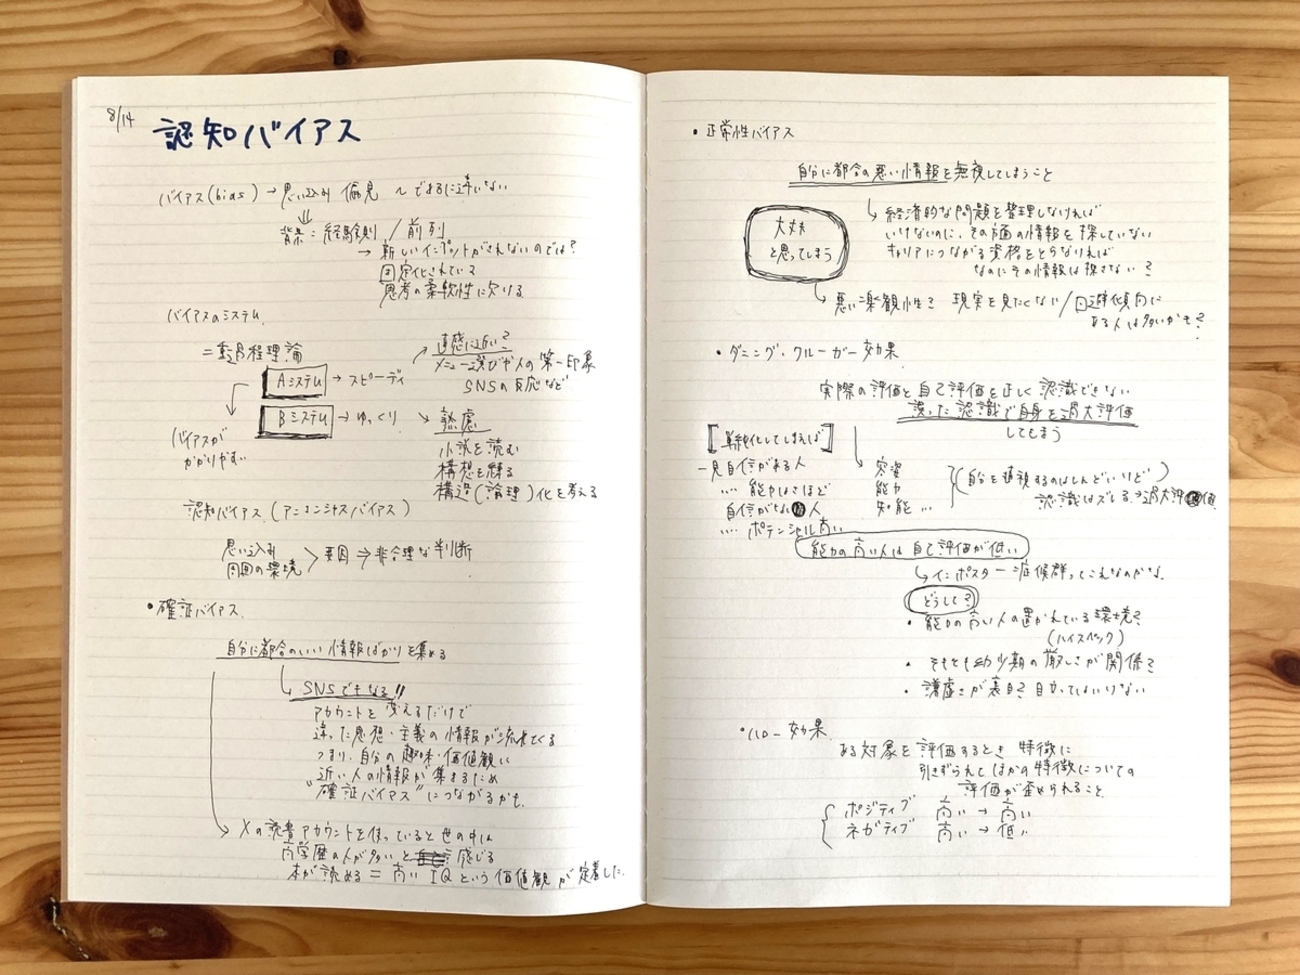 8/14
認知バイアス
バイアス(bias) → 思い込み 偏見 〜であるに違いない
背景 = 経験則 / 前列
→ 新しいインプットがされないのでは?
固定化されていて
思考の柔軟性に欠ける
バイアスのシステム
二重過程理論
直感に近い?
メニュー選びや人の第一印象
SNSの反応など
Aシステム → スピーディ
Bシステム → ゆっくり
熟慮
小説を読む
構想を練る
構造(論理)化を考える
バイアスが
かかりやすい
認知バイアス (アンコンシャスバイアス)
思い込み
周囲の環境
要因 ⇒ 非合理な判断
・確証バイアス
自分に都合のいい情報ばかりを集める
SNSでもなる!!
アカウントを変えるだけで
違った思想・主義の情報が流れてくる
つまり、自分の趣味・価値観に
近い人の情報が集まるため
"確証バイアス"につながるかも
Xの読書アカウントを使っていると世の中に
高学歴の人が多いと感じる
本が読める = 高い IQ という価値観が定着した.
・正常性バイアス
自分に都合の悪い情報を無視してしまうこと
大丈夫
と思ってしまう
経済的な問題を管理しなければ
いけないのに、その方面の情報を探していない
キャリアにつながる資格をとらなければ
なのにその情報は探さない?
悪い楽観性? 現実を見たくない/回避傾向に
ある人は多いかも?
・ダニング・クルーガー効果
実際の評価と自己評価を正しく認識できない
誤った認識で自身を過大評価
してしまう
[単純化してしまえば]
一見自信がある人
‥‥ 能力はさほど
自信がない人
‥‥ ポテンシャル高い
容姿
能力
知能 …
(自分を直視するのはしんどいけど)
認識はズレる → 過大評価
能力の高い人は自己評価が低い
インポスター症候群ってこれなのかな
どうして?
・能力の高い人の置かれている環境?
(ハイスペック)
・そもそも幼少期の厳しさが関係?
・謙虚さが裏目?
・ハロー効果
ある対象を評価するとき 特徴に
引きずられて ほかの特徴についての
評価が歪められること
ポジティブ 高い → 高い
ネガティブ 高い → 低い